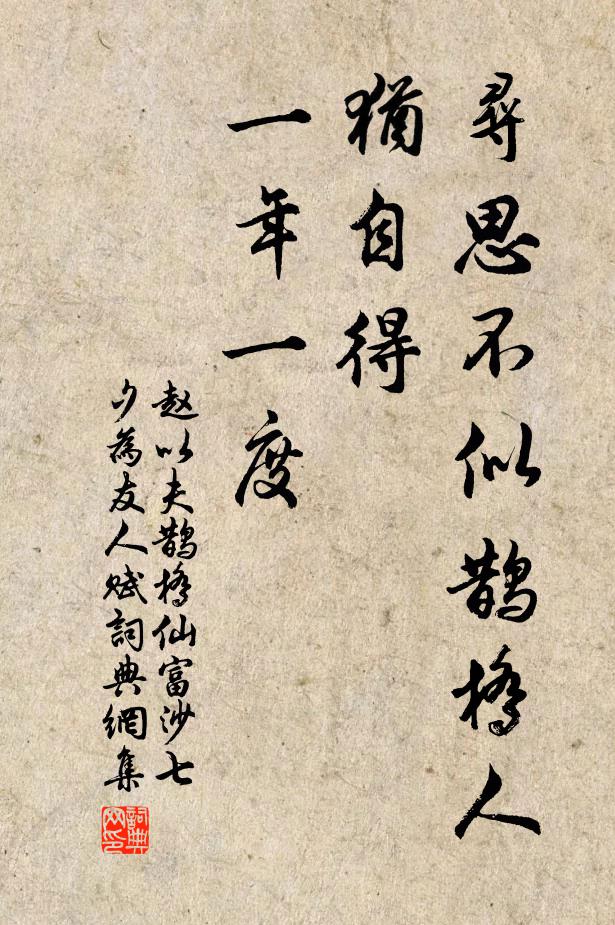 尋思不似鵲橋人
猶自得
一年一度
赵以夫鵲橋仙富沙七
夕為友人赋詞典網集
詞典
网印